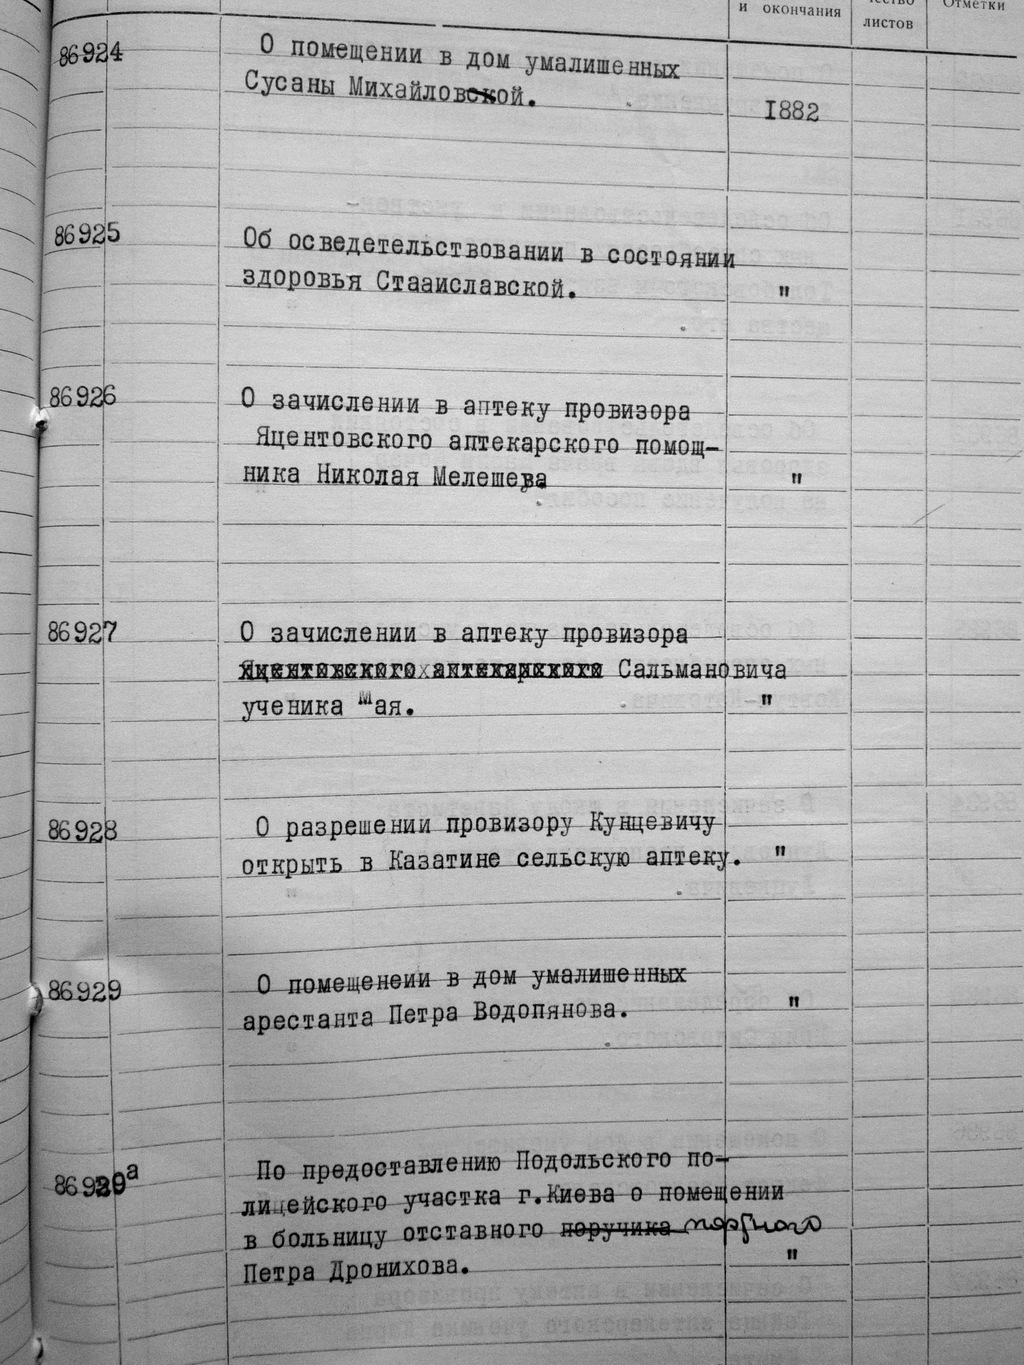 и окончания
листов
Отметки
86924
О помещении в дом умалишенных
Сусаны Михайловской.
1882
86925
Об осведетельствовании в состоянии
здоровья Стааиславской.
"
86926
О зачислении в аптеку провизора
Яцентовского аптекарского помощ-
ника Николая Мелешева
"
86927
О зачислении в аптеку провизора
Сальмановича
ученика Мая.
"
86928
О разрешении провизору Кунцевичу
открыть в Казатине сельскую аптеку.
"
86929
О помещенеии в дом умалишенных
арестанта Петра Водопянова.
"
86929а
По предоставлению Подольского по-
лицейского участка г.Киева о помещении
в больницу отставного поручика
Петра Дронихова.
"